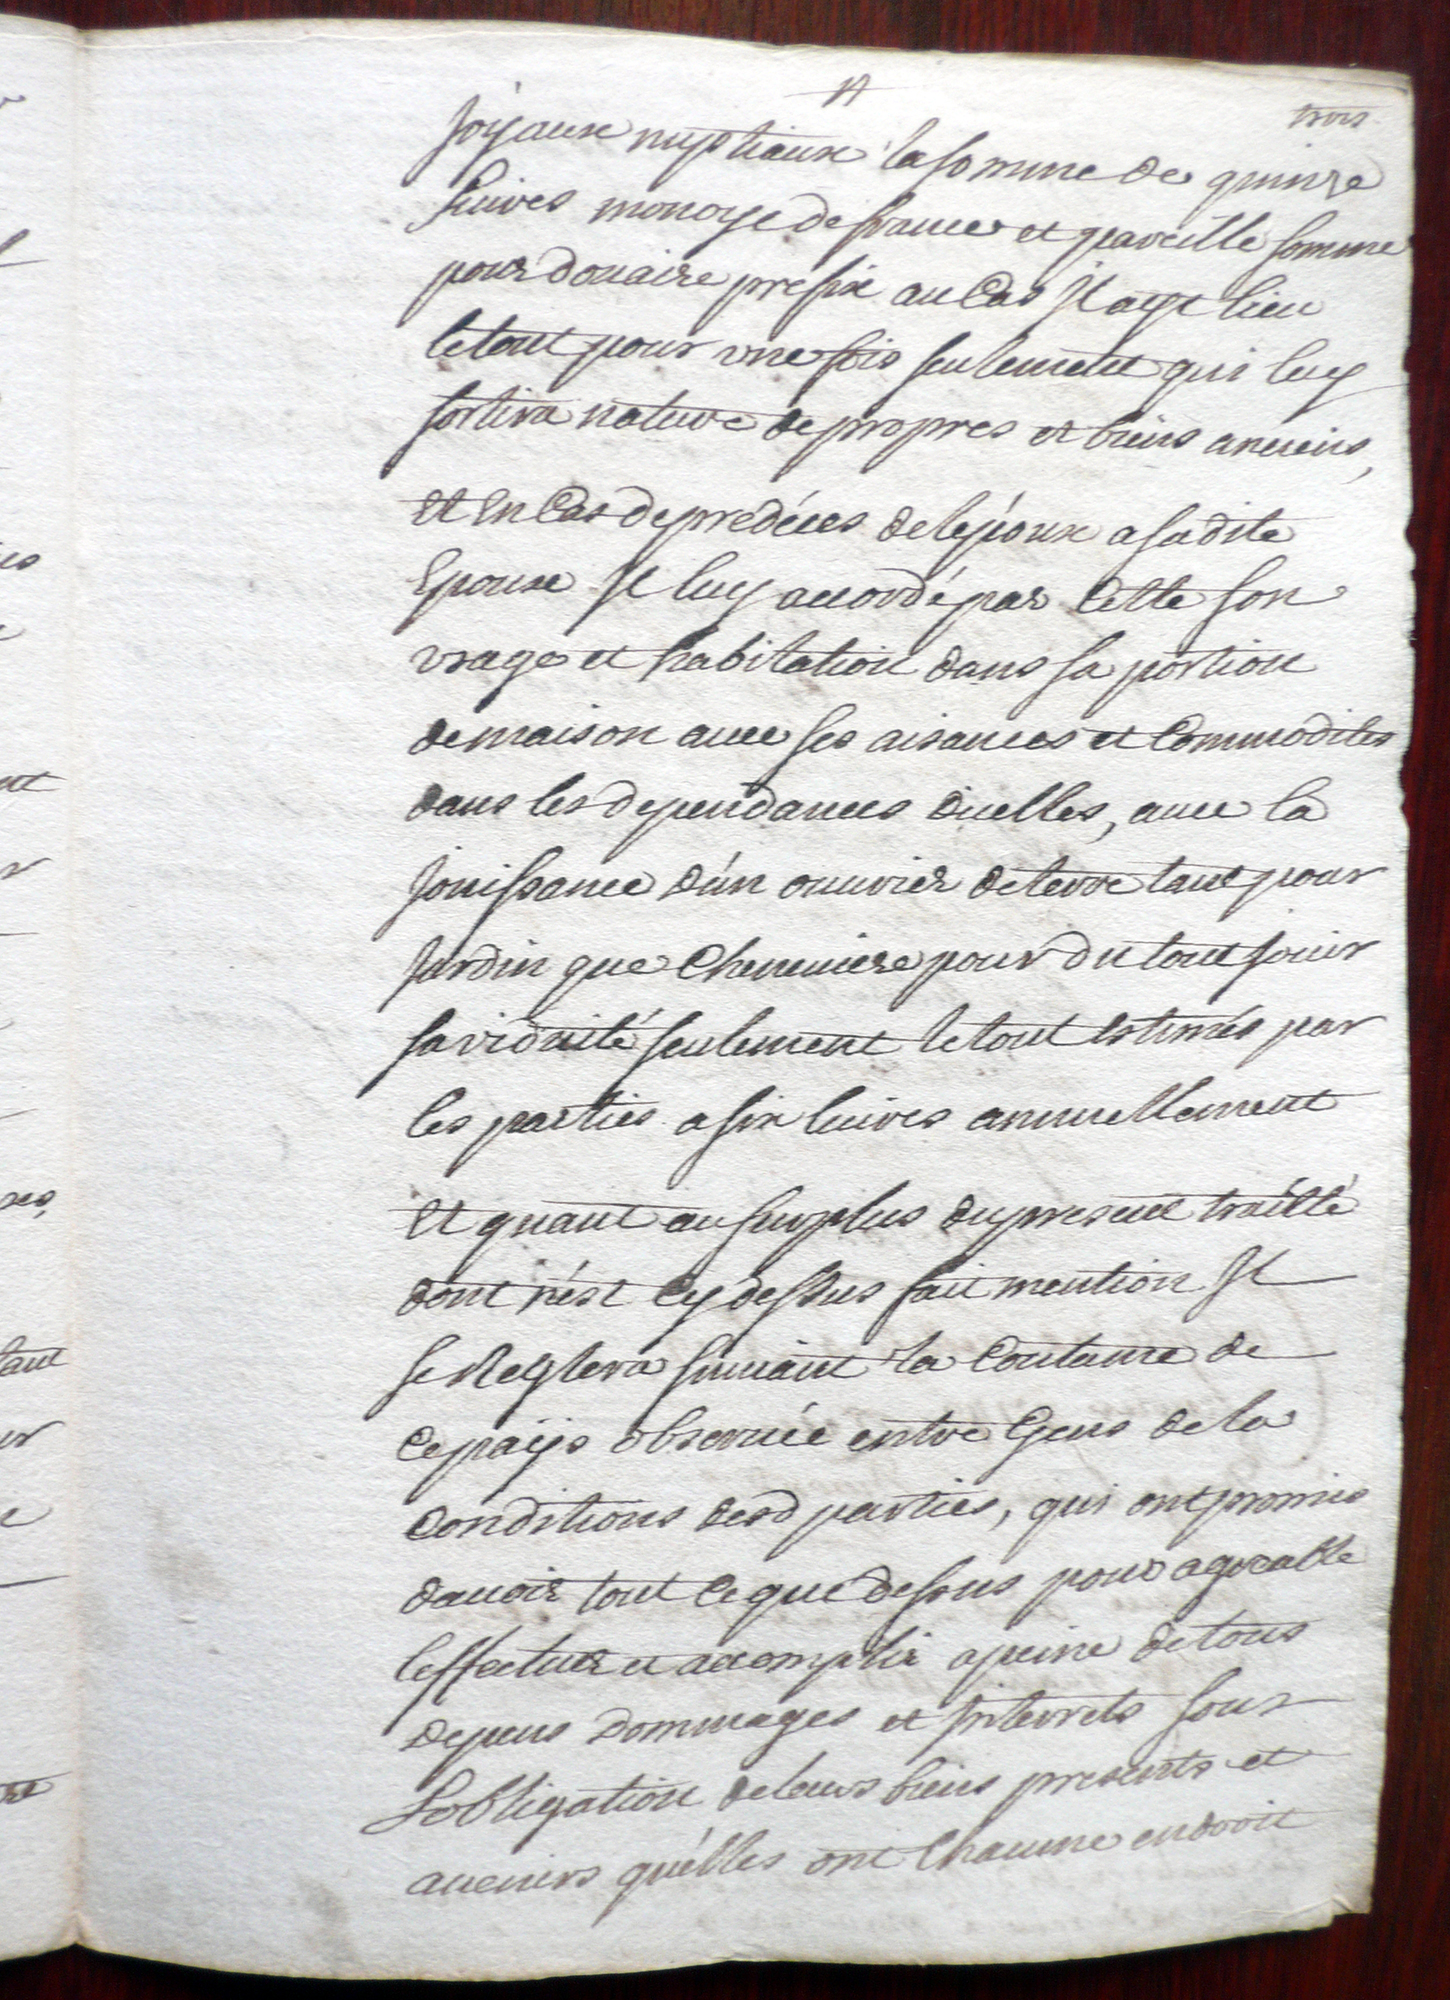 trois
Joÿaux nuptiaux la somme de quinze
Liures monoye de france et pareille somme
pour douaire prefix au Cas Jl ayt lieu
le tout pour une fois seulement qui luy
sortira nature de propres et biens anciens,
Et En Cas de predéces de lépoux a sadite
Epouse Jl luy accordé par Cette son
vsage et habitation dans sa portion
de maison auec ses aisances et Commodites
dans les dependances d'icelles, auec la
Jouissance d'ún ouurier de terre tant pour
Jardin que Cheneuiere pour du tout Jouir
sa viduité seulement le tout Estimés par
les parties a six liures annuellement
Et quant au surplus du present traitté
dont n'ést Cy dessus fait mention Jl
se Reglera suiuant la Coutume de
Ce païjs obseruée entre Gens de la
Conditions desd parties, qui ont promis
dauoir tout Ce que dessus pour agreable
leffectuer et accomplir a peine de tous
depens dommages et Jnterrets sous
Lobligation de leurs biens presents et
auenirs qu'élles ont Chacune endroit